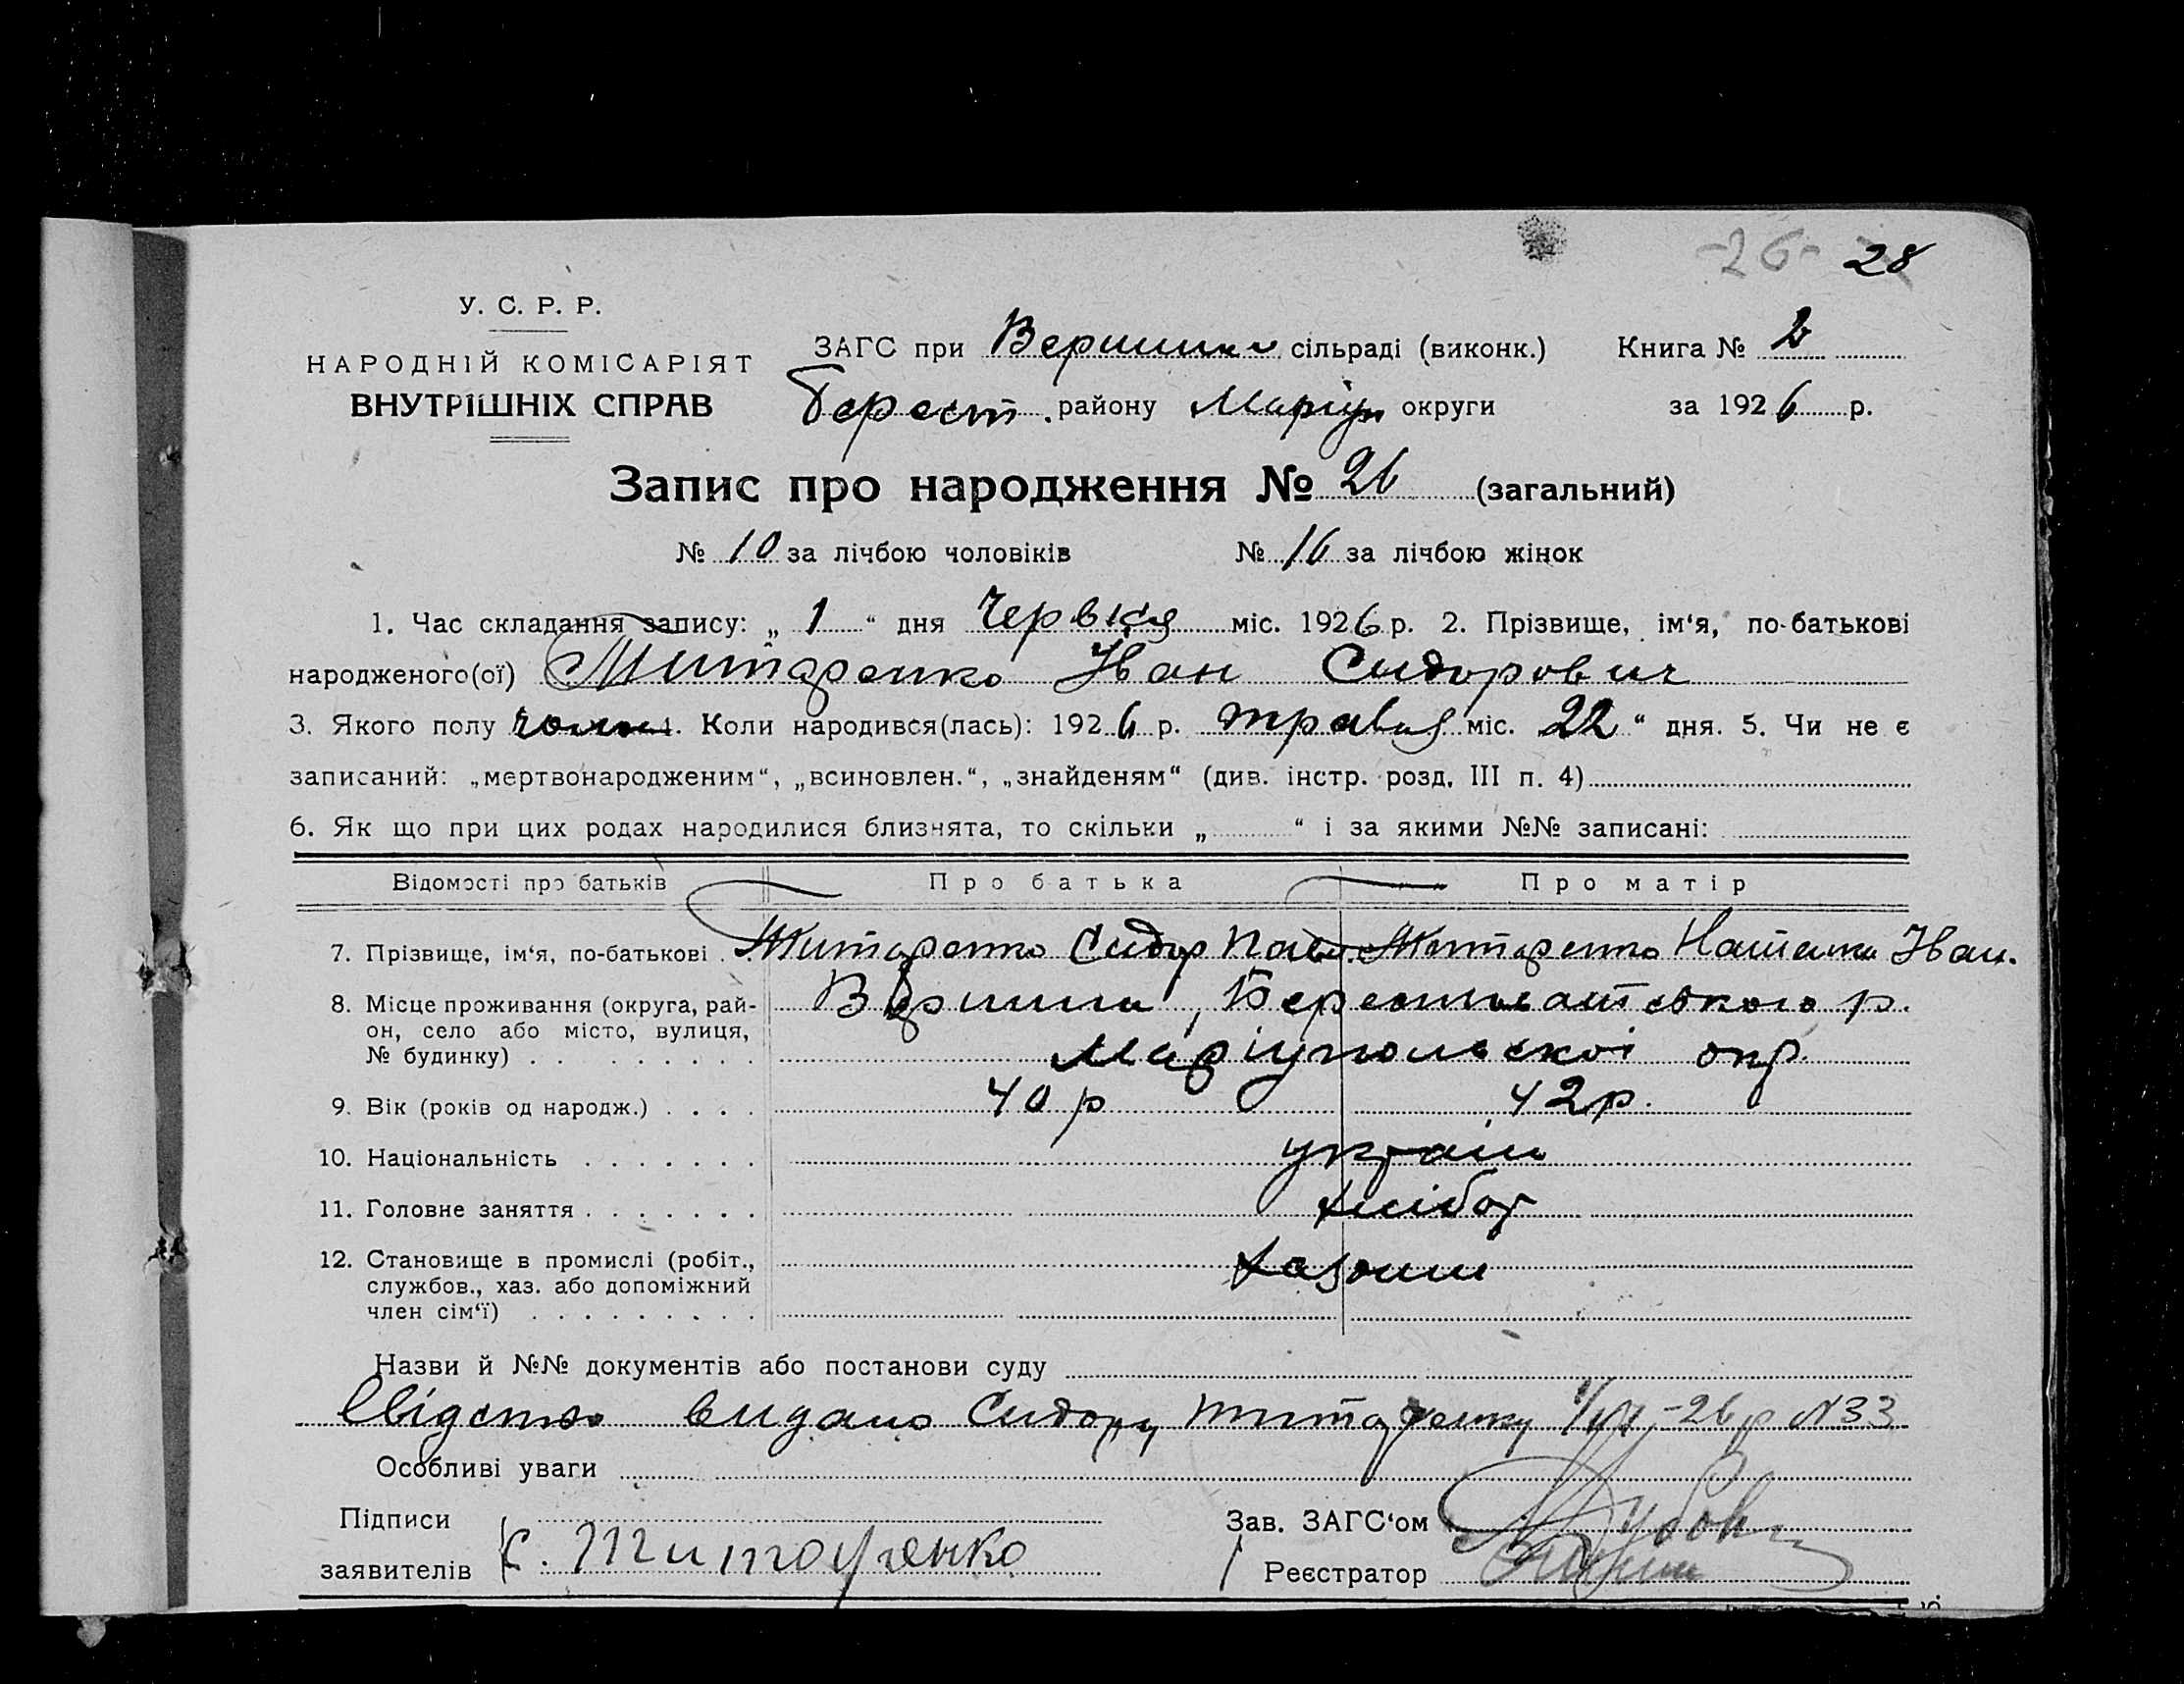 -26- 28
У. С. Р. Р.
НАРОДНІЙ КОМІСАРІЯТ
ВНУТРІШНІХ СПРАВ
ЗАГС при Вершин сільраді (виконк.) Книга № 2
Берест. району Маріуп округи за 1926 р.
Запис про народження № 26 (загальний)
№ 10 за лічбою чоловіків № 16 за лічбою жінок
1. Час складання запису: „ 1 “ дня Червня міс. 1926 р. 2. Прізвище, ім‘я, по-батькові
народженого(ої) Титаренко Іван Сидорович
3. Якого полу чолов 4. Коли народився(лась): 1926 р. травня міс. 22 “ дня. 5. Чи не є
записаний: „мертвонародженим“, „всиновлен.“, „знайденям“ (див. інстр. розд. III п. 4)
6. Як що при цих родах народилися близнята, то скільки „ “ і за якими №№ записані:
Відомості про батьків Про батька Про матір
7. Прізвище, ім‘я, по-батькові . . Титаренко Сидор Павл. Титаренко Наталка Іван.
8. Місце проживання (округа, рай-он, село або місто, вулиця, № будинку) . . . . . . . . . Вершина, Берестоватського р.
Маріупольскоі окр.
9. Вік (років од народж.) . . . . 40 р 42 р.
10. Національність . . . . . . . україн
11. Головне заняття . . . . . . . хлібор
12. Становище в промислі (робіт.,
службов., хаз. або допоміжний
член сім‘ї) . . . . . . . . .
Назви й №№ документів або постанови суду
Свідоцтво видано Сидору Титаренку 1/VI-26 р №33
Особливі уваги
Підписи
заявителів С. Титаренко
Зав. ЗАГС‘ом
Реєстратор